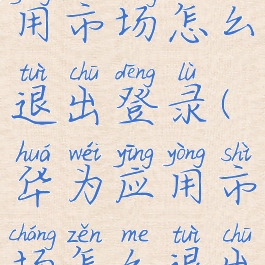 用市场怎么
tuì chū dēng lù
退出登录(
huá wéi yīng yòng shì
华为应用市
chǎng zěn me tuì chū
场怎么退出